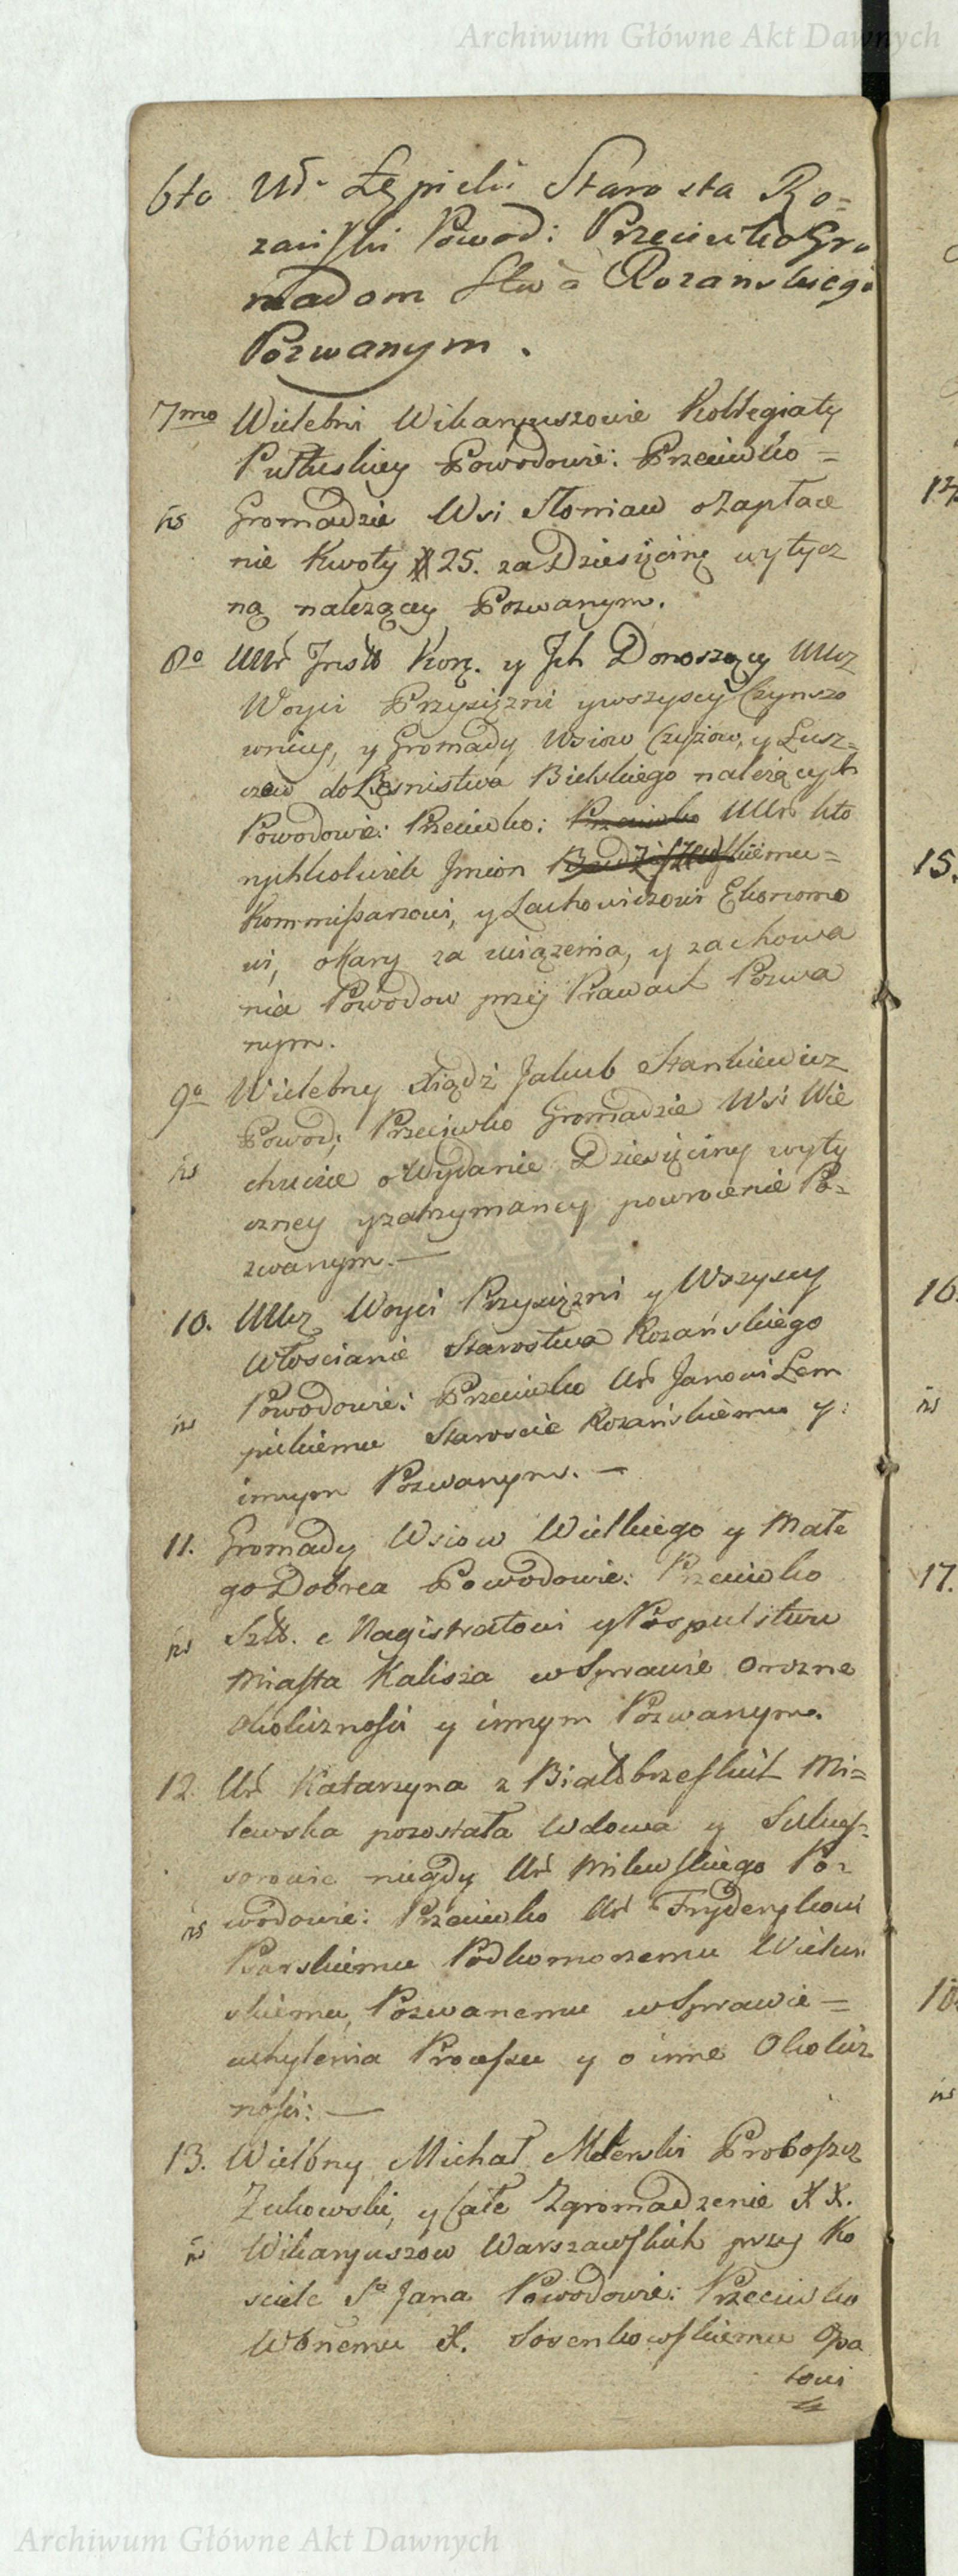 Archiwum Główne Akt Dawnych
6to Ur Łępicki Starosta Ro=
zański Powod: Przeciwko Gro
madom Stwa Rozanskiego
Pozwanym.
7mo Wielebni Wikaryuszowie Kollegiaty
Pułtuskiey Powodowie: Przeciwko =
ns Gromadzie Wsi Słoniaw o Zapłace
nie Kwoty 25. za Dziesięcinę wytycz
ną należącey Pozwanym.
8o UUr Inst Kor. y Jch Donoszący UUcz
Woyci Przysiężni y wszyscy Czynszo
wnicy, y Gromady Wsiow Czyżow, y Lusz=
czew do Leśnistwa Bielskiego należących
Powodowie: Przeciwko: Przeciwko UUr kto
rychkolwiek Jmion Budziszewskiemu=
Kommissarzowi, y Lachowiczowi Ekonomo
wi, o Kary za więzenia, y zachowa
nia Powodow przy Prawach Pozwa
nym.
9o Wielebny Xiądz Jakub Stankiewicz
Powod; Przeciwko Gromadzie Wsi Wie
ns chucie o Wydanie Dziesięciny wyty
czney y zatrzymaney powrocenie Po=
zwanym.—
10. UUcz Woyci Przysiężni y Wszyscy
Włoscianie Starostwa Rozańskiego
ns Powodowie: Przeciwko Ur Janowi Łem
pickiemu Staroscie Rozańskiemu y:
innym Pozwanym.—
11. Gromady Wsiow Wielkiego y Małe
go Dobrca Powodowie: Przeciwko
ns Szl. e Magistratowi y Pospulstwu
Miasta Kalisza w Sprawie o rozne
Okoliczności y innym Pozwanym.
12. Ur Katarzyna z Białobrzeskich Mi=
lewska pozostała Wdowa y Sukces=
sorowie niegdy Ur Milewskiego Po=
ns wodowie: Przeciwko Ur Fryderykowi
Parskiemu Podkomorzemu Wielun
skiemu, Pozwanemu w Sprawie =
uchylenia Processu y o inne Okolicz
ności: —
13. Wielbny Michał Proboszcz
Zukowski, y Całe Zgromadzenie XX.
ns Wikaryuszow Warszawskich przy Ko
sciele So Jana Powodowie: Przeciwko
Wbnemu X. Sosenkowskiemu Opa
towi
14.
15.
16.
ns
17.
18.
ns
Archiwum Główne Akt Dawnych